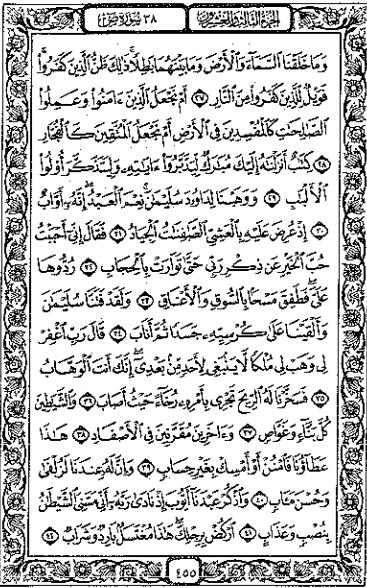 الجزء الثالث والعشرون
٣٨ سورة ص
وَمَا خَلَقْنَا ٱلسَّمَآءَ وَٱلْأَرْضَ وَمَا بَيْنَهُمَا بَٰطِلًا ۚ ذَٰلِكَ ظَنُّ ٱلَّذِينَ كَفَرُوا۟ ۚ
فَوَيْلٌ لِّلَّذِينَ كَفَرُوا۟ مِنَ ٱلنَّارِ ٢٧ أَمْ نَجْعَلُ ٱلَّذِينَ ءَامَنُوا۟ وَعَمِلُوا۟
ٱلصَّٰلِحَٰتِ كَٱلْمُفْسِدِينَ فِى ٱلْأَرْضِ أَمْ نَجْعَلُ ٱلْمُتَّقِينَ كَٱلْفُجَّارِ
٢٨ كِتَٰبٌ أَنزَلْنَٰهُ إِلَيْكَ مُبَٰرَكٌ لِّيَدَّبَّرُوٓا۟ ءَايَٰتِهِۦ وَلِيَتَذَكَّرَ أُو۟لُوا۟
ٱلْأَلْبَٰبِ ٢٩ وَوَهَبْنَا لِدَاوُۥدَ سُلَيْمَٰنَ ۚ نِعْمَ ٱلْعَبْدُ ۖ إِنَّهُۥٓ أَوَّابٌ
٣٠ إِذْ عُرِضَ عَلَيْهِ بِٱلْعَشِىِّ ٱلصَّٰفِنَٰتُ ٱلْجِيَادُ ٣١ فَقَالَ إِنِّىٓ أَحْبَبْتُ
حُبَّ ٱلْخَيْرِ عَن ذِكْرِ رَبِّى حَتَّىٰ تَوَارَتْ بِٱلْحِجَابِ ٣٢ رُدُّوهَا
عَلَىَّ ۖ فَطَفِقَ مَسْحًۢا بِٱلسُّوقِ وَٱلْأَعْنَاقِ ٣٣ وَلَقَدْ فَتَنَّا سُلَيْمَٰنَ
وَأَلْقَيْنَا عَلَىٰ كُرْسِيِّهِۦ جَسَدًا ثُمَّ أَنَابَ ٣٤ قَالَ رَبِّ ٱغْفِرْ
لِى وَهَبْ لِى مُلْكًا لَّا يَنۢبَغِى لِأَحَدٍ مِّنۢ بَعْدِىٓ ۖ إِنَّكَ أَنتَ ٱلْوَهَّابُ
٣٥ فَسَخَّرْنَا لَهُ ٱلرِّيحَ تَجْرِى بِأَمْرِهِۦ رُخَآءً حَيْثُ أَصَابَ ٣٦ وَٱلشَّيَٰطِينَ
كُلَّ بَنَّآءٍ وَغَوَّاصٍ ٣٧ وَءَاخَرِينَ مُقَرَّنِينَ فِى ٱلْأَصْفَادِ ٣٨ هَٰذَا
عَطَآؤُنَا فَٱمْنُنْ أَوْ أَمْسِكْ بِغَيْرِ حِسَابٍ ٣٩ وَإِنَّ لَهُۥ عِندَنَا لَزُلْفَىٰ
وَحُسْنَ مَـَٔابٍ ٤٠ وَٱذْكُرْ عَبْدَنَآ أَيُّوبَ إِذْ نَادَىٰ رَبَّهُۥٓ أَنِّى مَسَّنِىَ ٱلشَّيْطَٰنُ
بِنُصْبٍ وَعَذَابٍ ٤١ ٱرْكُضْ بِرِجْلِكَ ۖ هَٰذَا مُغْتَسَلٌۢ بَارِدٌ وَشَرَابٌ ٤٢
٤٥٥